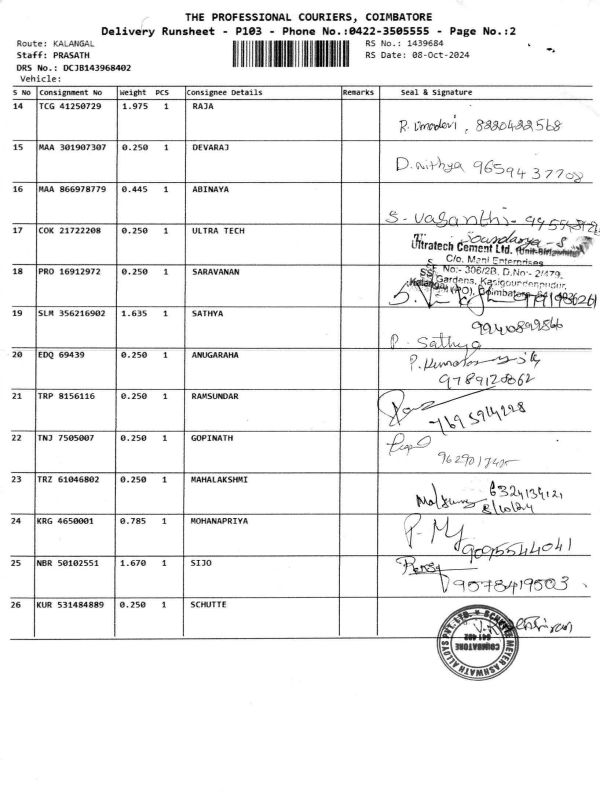 THE PROFESSIONAL COURIERS, COIMBATORE
Delivery Runsheet - P103 - Phone No.:0422-3505555 - Page No.:2
Route: KALANGAL RS No.: 1439684
Staff: PRASATH RS Date: 08-Oct-2024
DRS No.: DCJB143968402
Vehicle:
S No Consignment No Weight PCS Consignee Details Remarks Seal & Signature
14 TCG 41250729 1.975 1 RAJA
R. Umadevi, 8220422568
15 MAA 301907307 0.250 1 DEVARAJ
D. Nithya 9659437708
16 MAA 866978779 0.445 1 ABINAYA
S. Vasanthi
17 COK 21722208 0.250 1 ULTRA TECH
Soundarya - S
Ultratech Cement Ltd.
C/o. Mani Enterprises
No:- 306/2B, D.No:- 2/479,
18 PRO 16912972 0.250 1 SARAVANAN
Gardens, Kasigoundenpudur,
(PO), Coimbatore
19 SLM 356216902 1.635 1 SATHYA
P. Sathya
20 EDQ 69439 0.250 1 ANUGARAHA
9789120862
21 TRP 8156116 0.250 1 RAMSUNDAR
7695914228
22 TNJ 7505007 0.250 1 GOPINATH
23 TRZ 61046802 0.250 1 MAHALAKSHMI
8/10/24
24 KRG 4650001 0.785 1 MOHANAPRIYA
9095544041
25 NBR 50102551 1.670 1 SIJO
9578419503
26 KUR 531484889 0.250 1 SCHUTTE
SCHUTTE MEYER ASHWATH ALLOYS PVT. LTD.
COIMBATORE
641 402